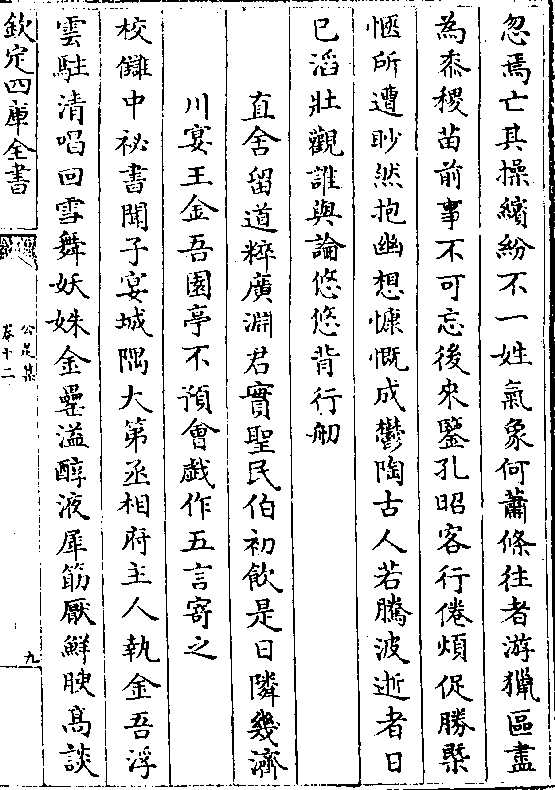 忽焉亡其操繽紛不一姓氣象何蕭條往者游獵區盡
為黍稷苗前事不可忘後来鑒孔昭客行倦煩促勝槩
愜所遭眇然抱幽想慷慨成鬱陶古人若騰波逝者日
已滔壯觀誰與論悠悠背行舠
直舍留道粹廣淵君實聖民伯初飲是日隣幾濟
川宴王金吾園亭不預會戯作五言寄之
校讎中祕書聞子宴城隅大第丞相府主人執金吾浮
雲駐清唱回雪舞妖姝金罍溢醇液犀筯厭鮮腴髙談
欽定四庫全書
公是集
卷十二
九